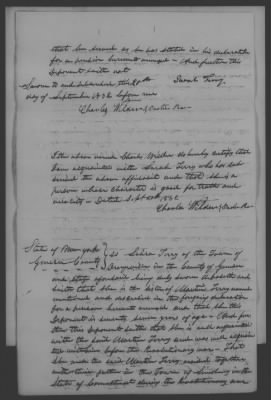 that he served as he has stated in his declaration
for a pension hereunto annexed - And further this
deponent saith not
Sworn to and subscribed this 8th Sarah Terry
day of September 1832 before me
Charles Wilder
I the above named Charles Wilder do hereby certify that
I am acquainted with Sarah Terry who has sub
scribed the above affidavit and that she is a
person whose character is good for truth and
veracity - Dated Sept 1832
Charles Wilder
State of New York
Genesee County } ss Terry of the Town of
in the County of Genesee
and State aforesaid being duly sworn deposeth and
saith that she is the sister of Martin Terry named
mentioned and described in the foregoing declaration
for a pension hereunto annexed and that she this
deponent is seventy seven years of age - And fur
ther this deponent saith that she is well acquainted
with the said Martin Terry and was well acquain
ted with him before the Revolutionary war - That
she and the said Martin Terry resided together
with their father in the Town of in the
State of Connecticut during the Revolutionary war